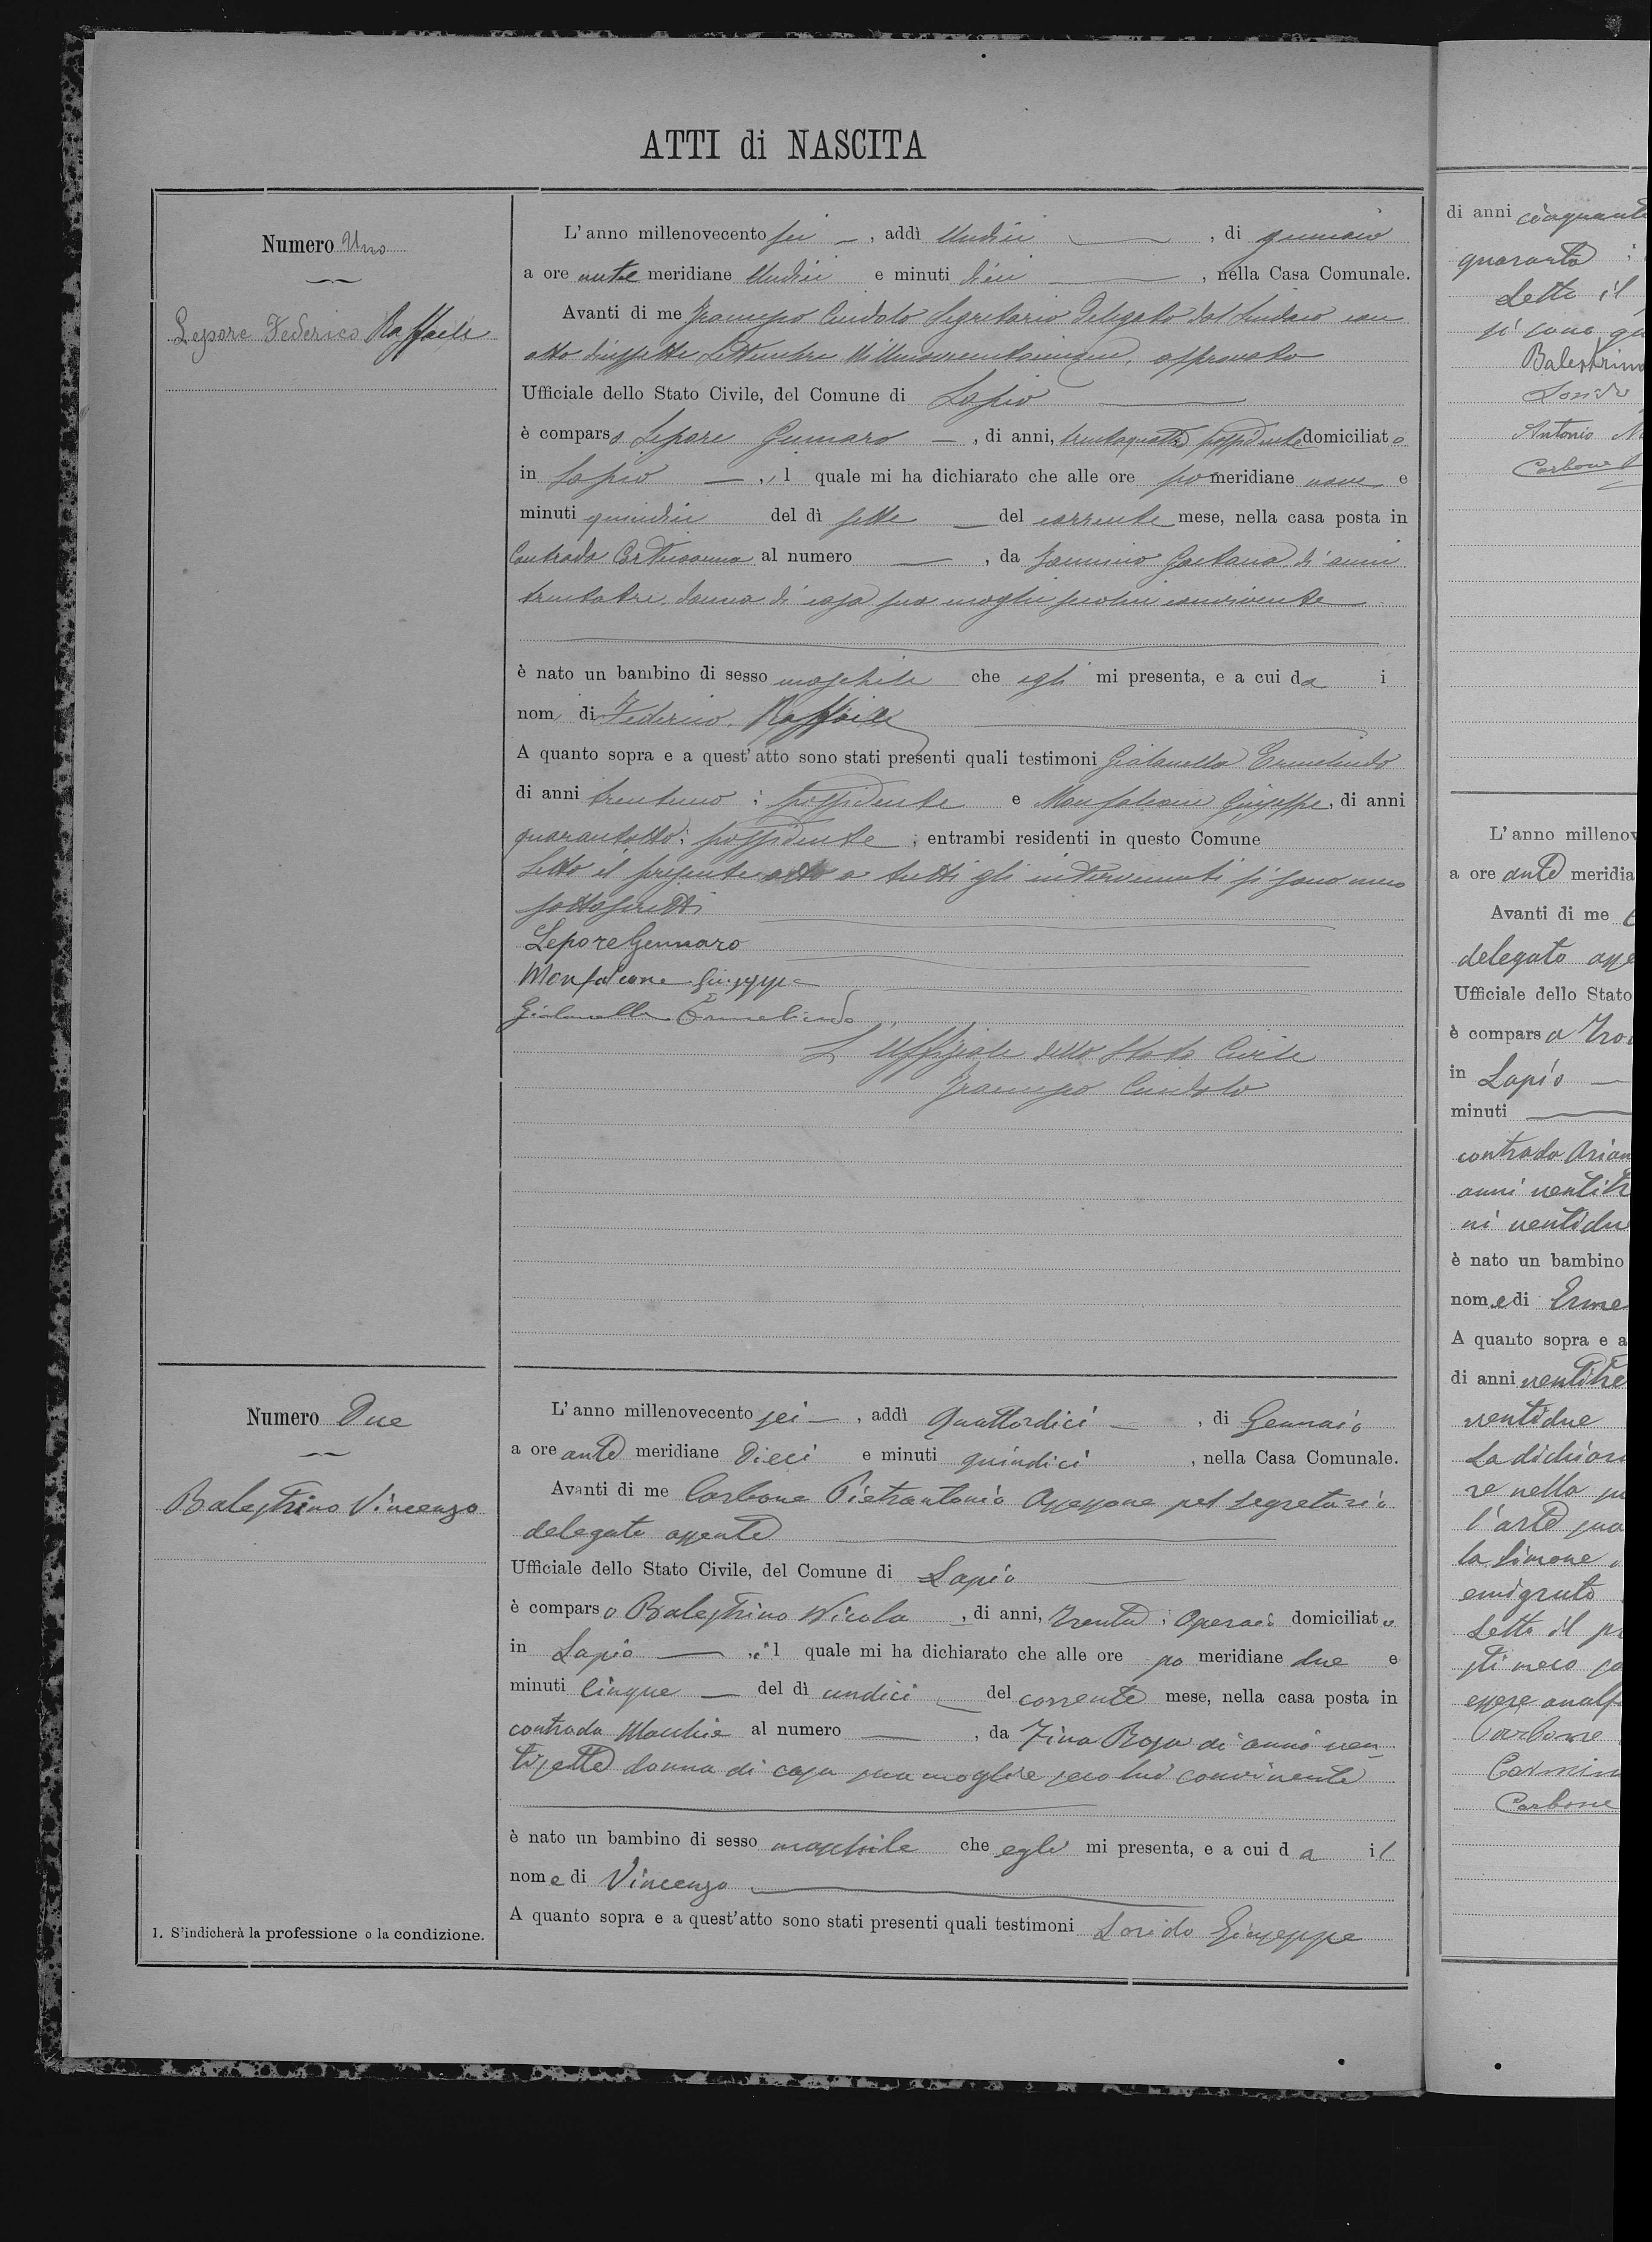 ATTI di NASCITA
Numero Uno
Lepore Federico Raffaele
L'anno millenovecento sei, addì Undici, di gennaio
a ore ante meridiane Undici e minuti dieci, nella Casa Comunale.
Avanti di me Segretario delegato dal Sindaco con
atto diciassette Settembre Millenovecentocinque, approvato
Ufficiale dello Stato Civile, del Comune di Lapio
è comparso Lepore Gennaro, di anni, trentaquattro possidente domiciliato
in Lapio, il quale mi ha dichiarato che alle ore pomeridiane nove e
minuti quindici del dì sette del corrente mese, nella casa posta in
Contrada al numero, da Gaetana di anni
trentatre, donna di casa sua moglie seco lui convivente
è nato un bambino di sesso maschile che egli mi presenta, e a cui da i
nomi di Federico, Raffaele
A quanto sopra e a quest'atto sono stati presenti quali testimoni Giolanella Ermelindo
di anni trentuno; possidente e Monfalcone Giuseppe, di anni
quarantotto; possidente; entrambi residenti in questo Comune
Letto il presente atto a tutti gli intervenuti si sono meco
sottoscritti
Lepore Gennaro
Monfalcone Giuseppe
Giolanella Ermelindo
L'Uffiziale dello Stato Civile
Numero Due
Balestrino Vincenzo
L'anno millenovecento sei, addì Quattordici, di Gennaio
a ore ante meridiane Dieci e minuti quindici, nella Casa Comunale.
Avanti di me Carbone Pietrantonio Assessore pel segretario
delegato assente
Ufficiale dello Stato Civile, del Comune di Lapio
è comparso Balestrino Nicola, di anni, trenta; Operaio domiciliato
in Lapio, il quale mi ha dichiarato che alle ore pomeridiane due e
minuti Cinque del dì undici del corrente mese, nella casa posta in
contrada Macchie al numero, da Zina Rosa di anni ven=
tisette donna di casa sua moglie seco lui convivente
è nato un bambino di sesso maschile che egli mi presenta, e a cui da il
nome di Vincenzo
A quanto sopra e a quest'atto sono stati presenti quali testimoni Lorido Giuseppe
1. S'indicherà la professione o la condizione.
di anni cinquant
quaranta
Letto il
si sono
Balestrino
Antonio
Carbone
L'anno milleno
a ore ante meridia
Avanti di me
delegato asse
Ufficiale dello Stato
è comparsa
in Lapio
minuti
contrada Arian
anni ventitr
ni ventidue
è nato un bambino
nome di Erme
A quanto sopra e a
di anni ventitre
ventidue
La dichiara
re nella
l'arte sua
la Simone
emigrato
Letto il pr
sti meco so
essere analf
Carbone
Carmin
Carbone